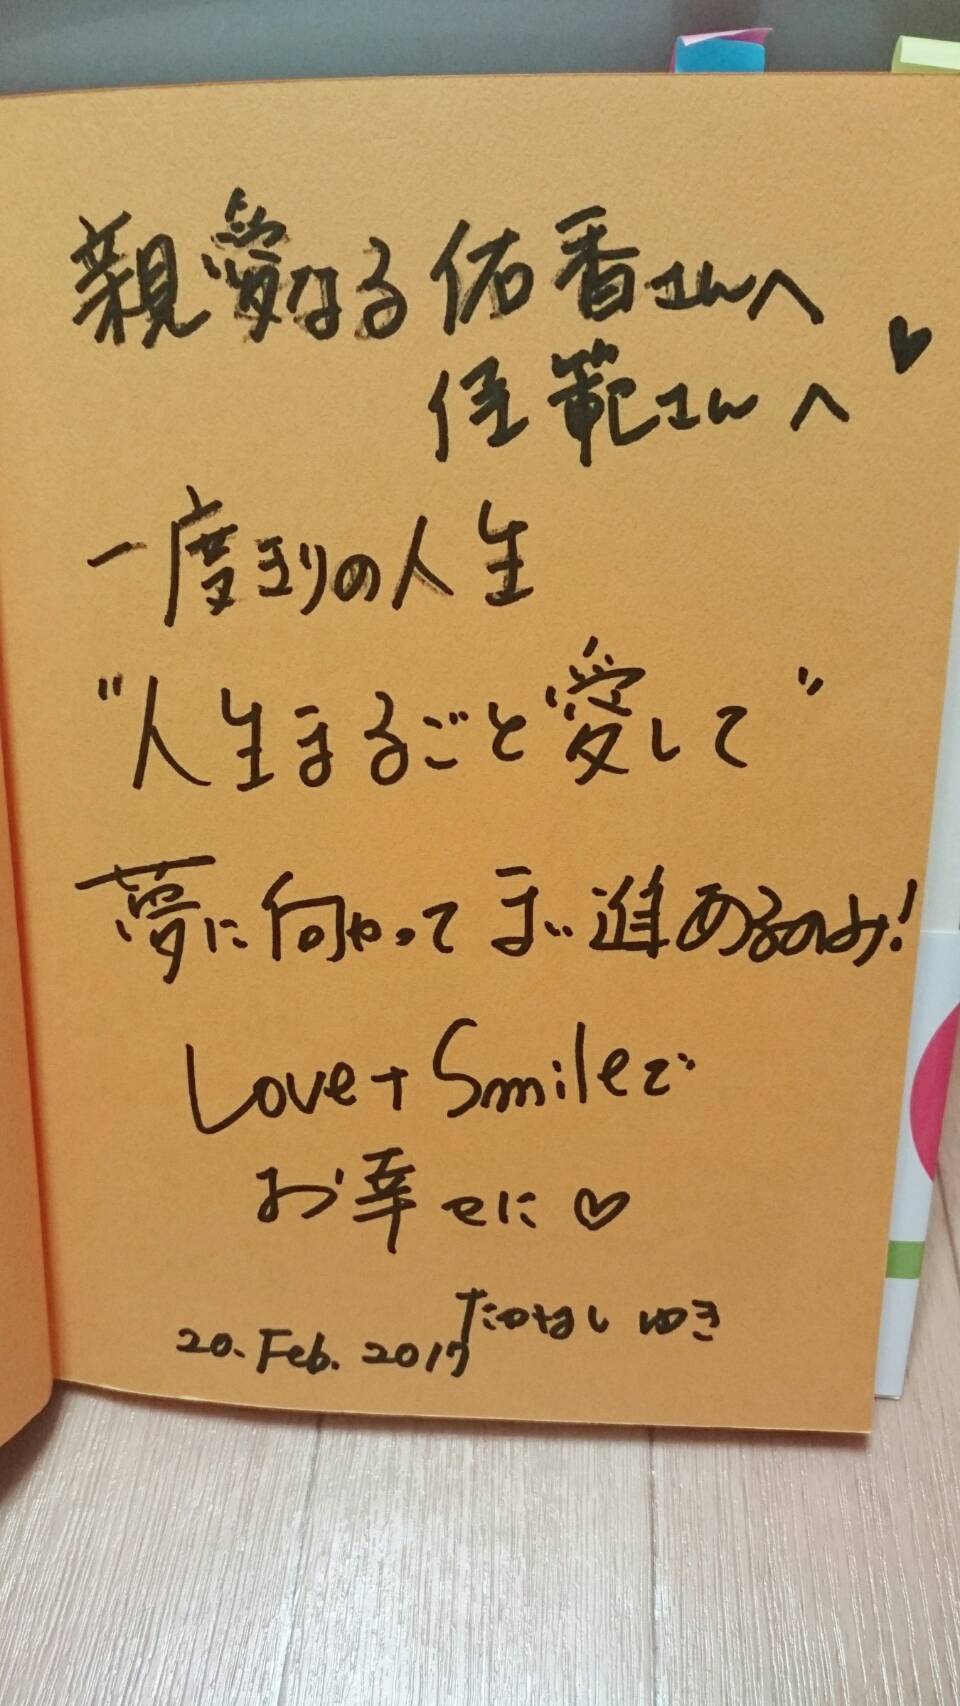 親愛なる佑香さんへ
佳範さんへ♥
一度きりの人生
"人生まるごと愛して"
夢に向かって 進めるのみ!
Love+Smileで
お幸せに♡
20. Feb. 2017 ゆき